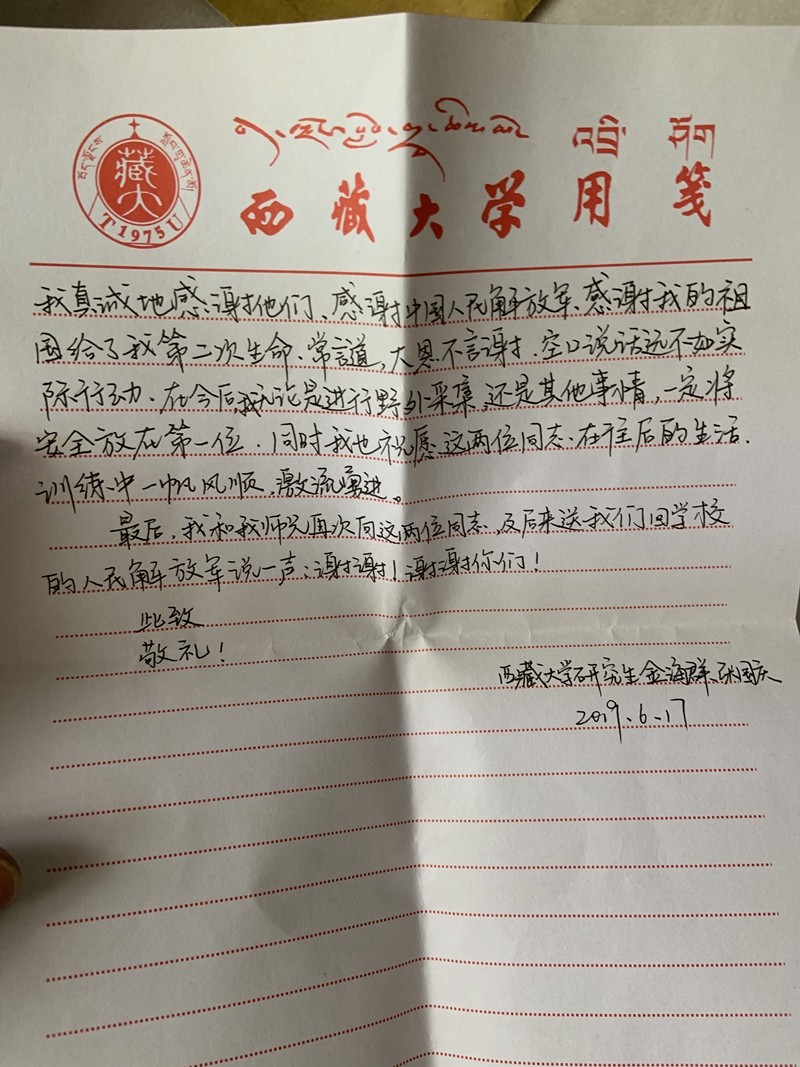 藏大
T1975U
西藏大学用笺
我真诚地感谢他们、感谢中国人民解放军、感谢我的祖
国给了我第二次生命、常言道，大恩不言谢．空口说话远不如实
际行动．在今后，我无论是进行野外采集，还是其他事情，一定将
安全放在第一位．同时我也祝愿这两位同志、在往后的生活、
训练中一帆风顺，激流勇进。
最后，我和我师兄再次向这两位同志、及后来送我们回学校
的人民解放军说一声：谢谢！谢谢你们！
此致
敬礼！
西藏大学研究生金海群、张国庆
2019.6.17